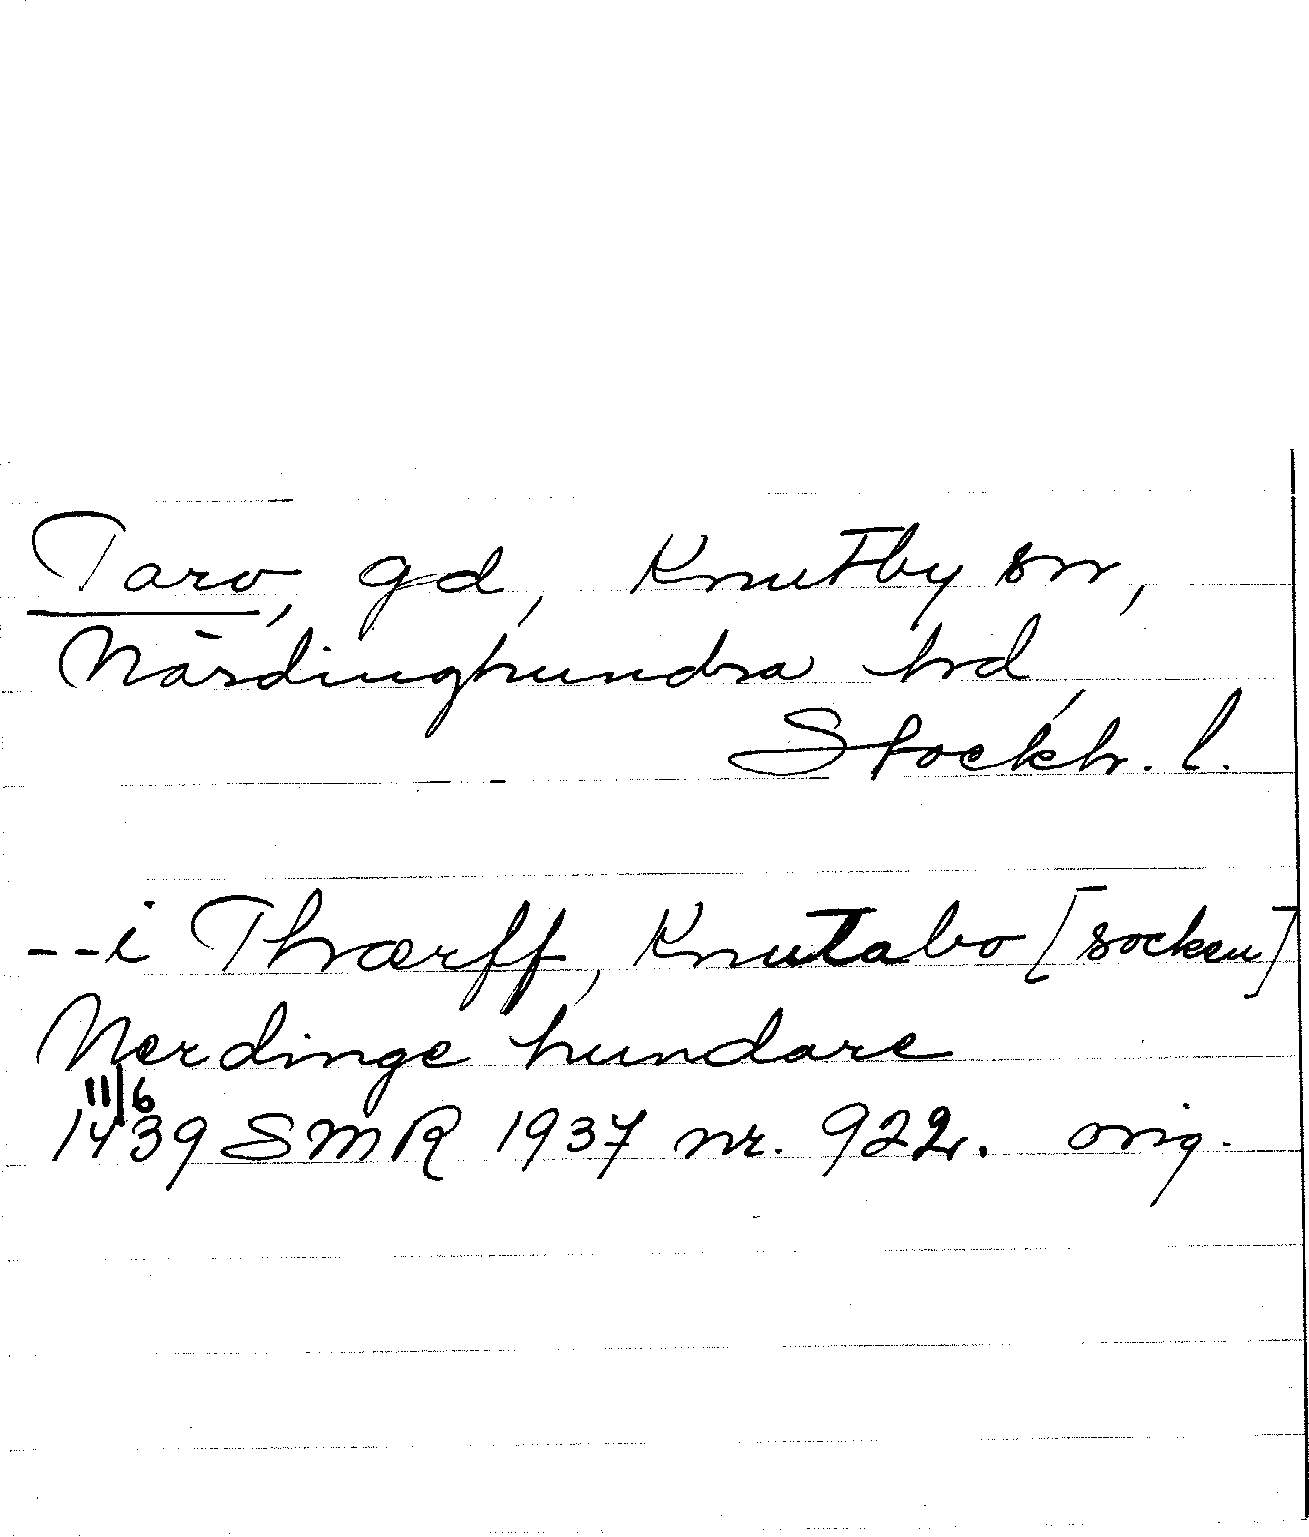 Tarv, gd, Knutby sn,
Närdinghundra hd,
Stockh. l.
--i Thrærff, Knutabo [socken]
Nerdinge hundare
11/6
1439 SMR 1937 nr. 922. orig.